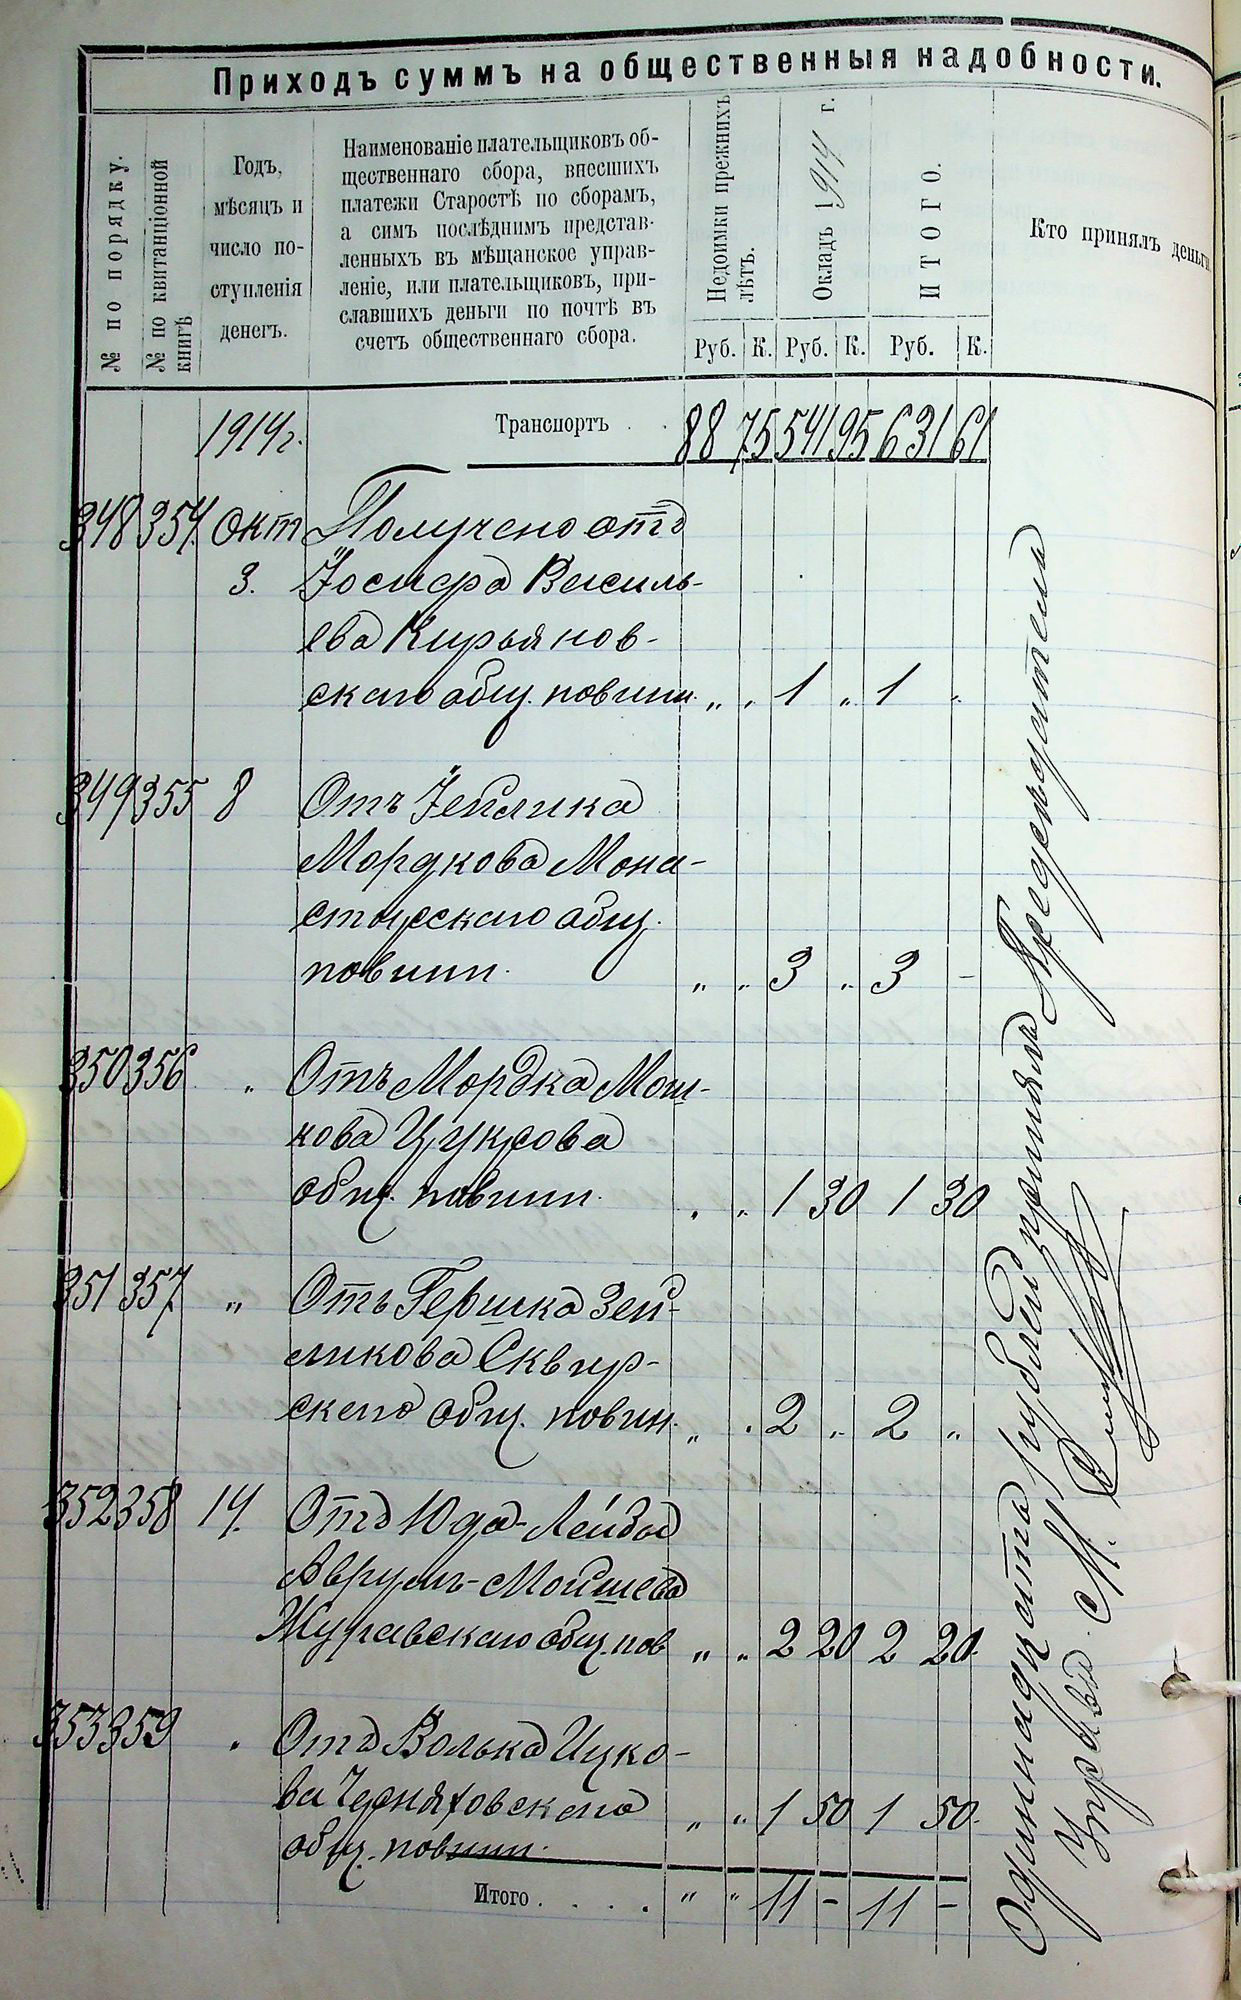 Приходъ суммъ на общественныя надобности.
№ по порядку.
№ по квитанціонной
книгѣ
Годъ,
мѣсяцъ и
число по-
ступленія
денегъ.
Наименованіе плательщиковъ об-
щественнаго сбора, внесшихъ
платежи Старостѣ по сборамъ,
а симъ послѣднимъ представ-
ленныхъ въ мѣщанское управ-
леніе, или плательщиковъ, при-
славшихъ деньги по почтѣ въ
счетъ общественнаго сбора.
Недоимки прежнихъ
лѣтъ.
Окладъ 1914 г.
ИТОГО.
Кто принялъ деньги
Руб. К. Руб. К. Руб. К.
1914 г. Транспортъ . . 88 75 541 95 631 61
348 354. Окт Получено отъ
3. Іосифа Василь-
ева Кирьянов-
скаго общ. повинн. „ „ 1 „ 1 „
349 355 8 Отъ Зейлика
Мордкова Мона-
стырскаго общ.
повинн. „ „ 3 „ 3 –
350 356 „ Отъ Мордка Мош-
кова Цукрова
общ. повинн. „ „ 1 30 1 30
351 357 „ Отъ Гершка Зей-
ликова Сквир-
скаго общ. повин. „ „ 2 „ 2 „
352 358 14. Отъ Юда-Лейбы
Аврумъ-Мойшева
Журавскаго общ. пов „ „ 2 20 2 20.
353 359 „ Отъ Волька Ицко-
ва Черняховскаго „ „ 1 50 1 50.
общ. повинн.
Итого . . . . „ „ 11 – 11 –
Одиннадцать рублей принялъ Председатель
Управы М.